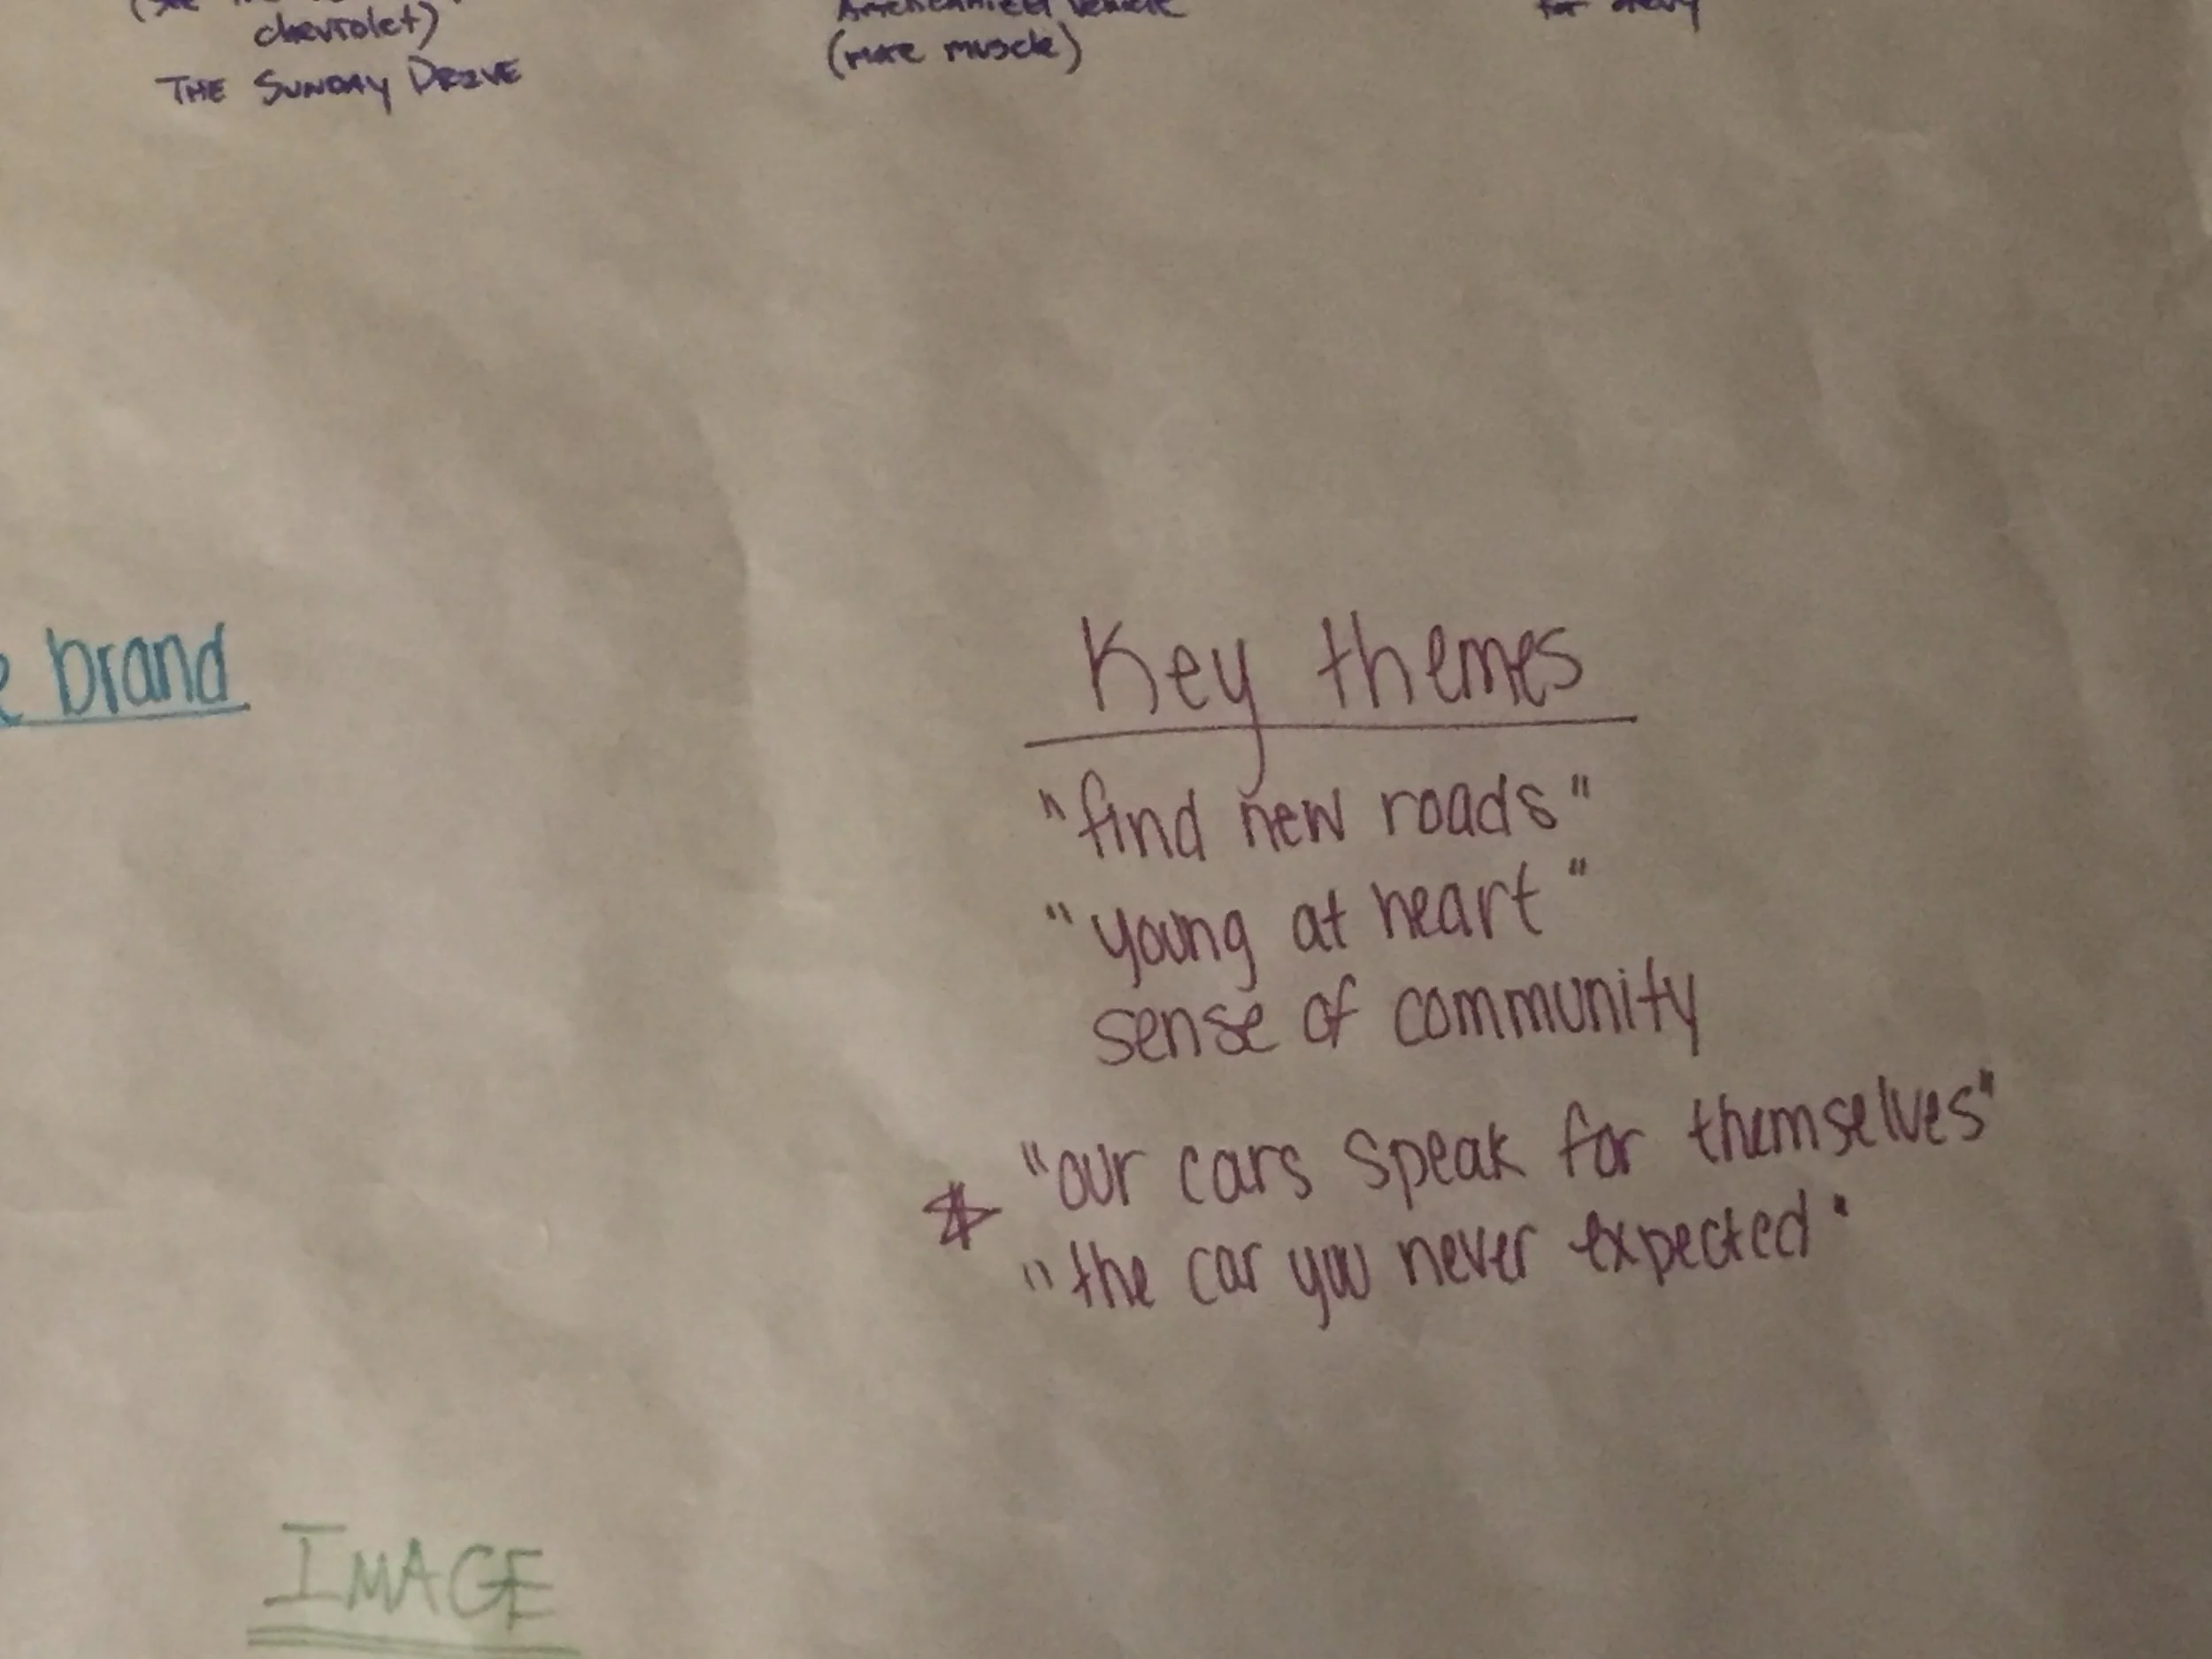 chevrolet)
THE SUNDAY DRIVE
vehicle
(more muscle)
for chevy
e brand
Key themes
"find new roads"
"young at heart"
sense of community
"our cars speak for themselves"
"the car you never expected"
IMAGE